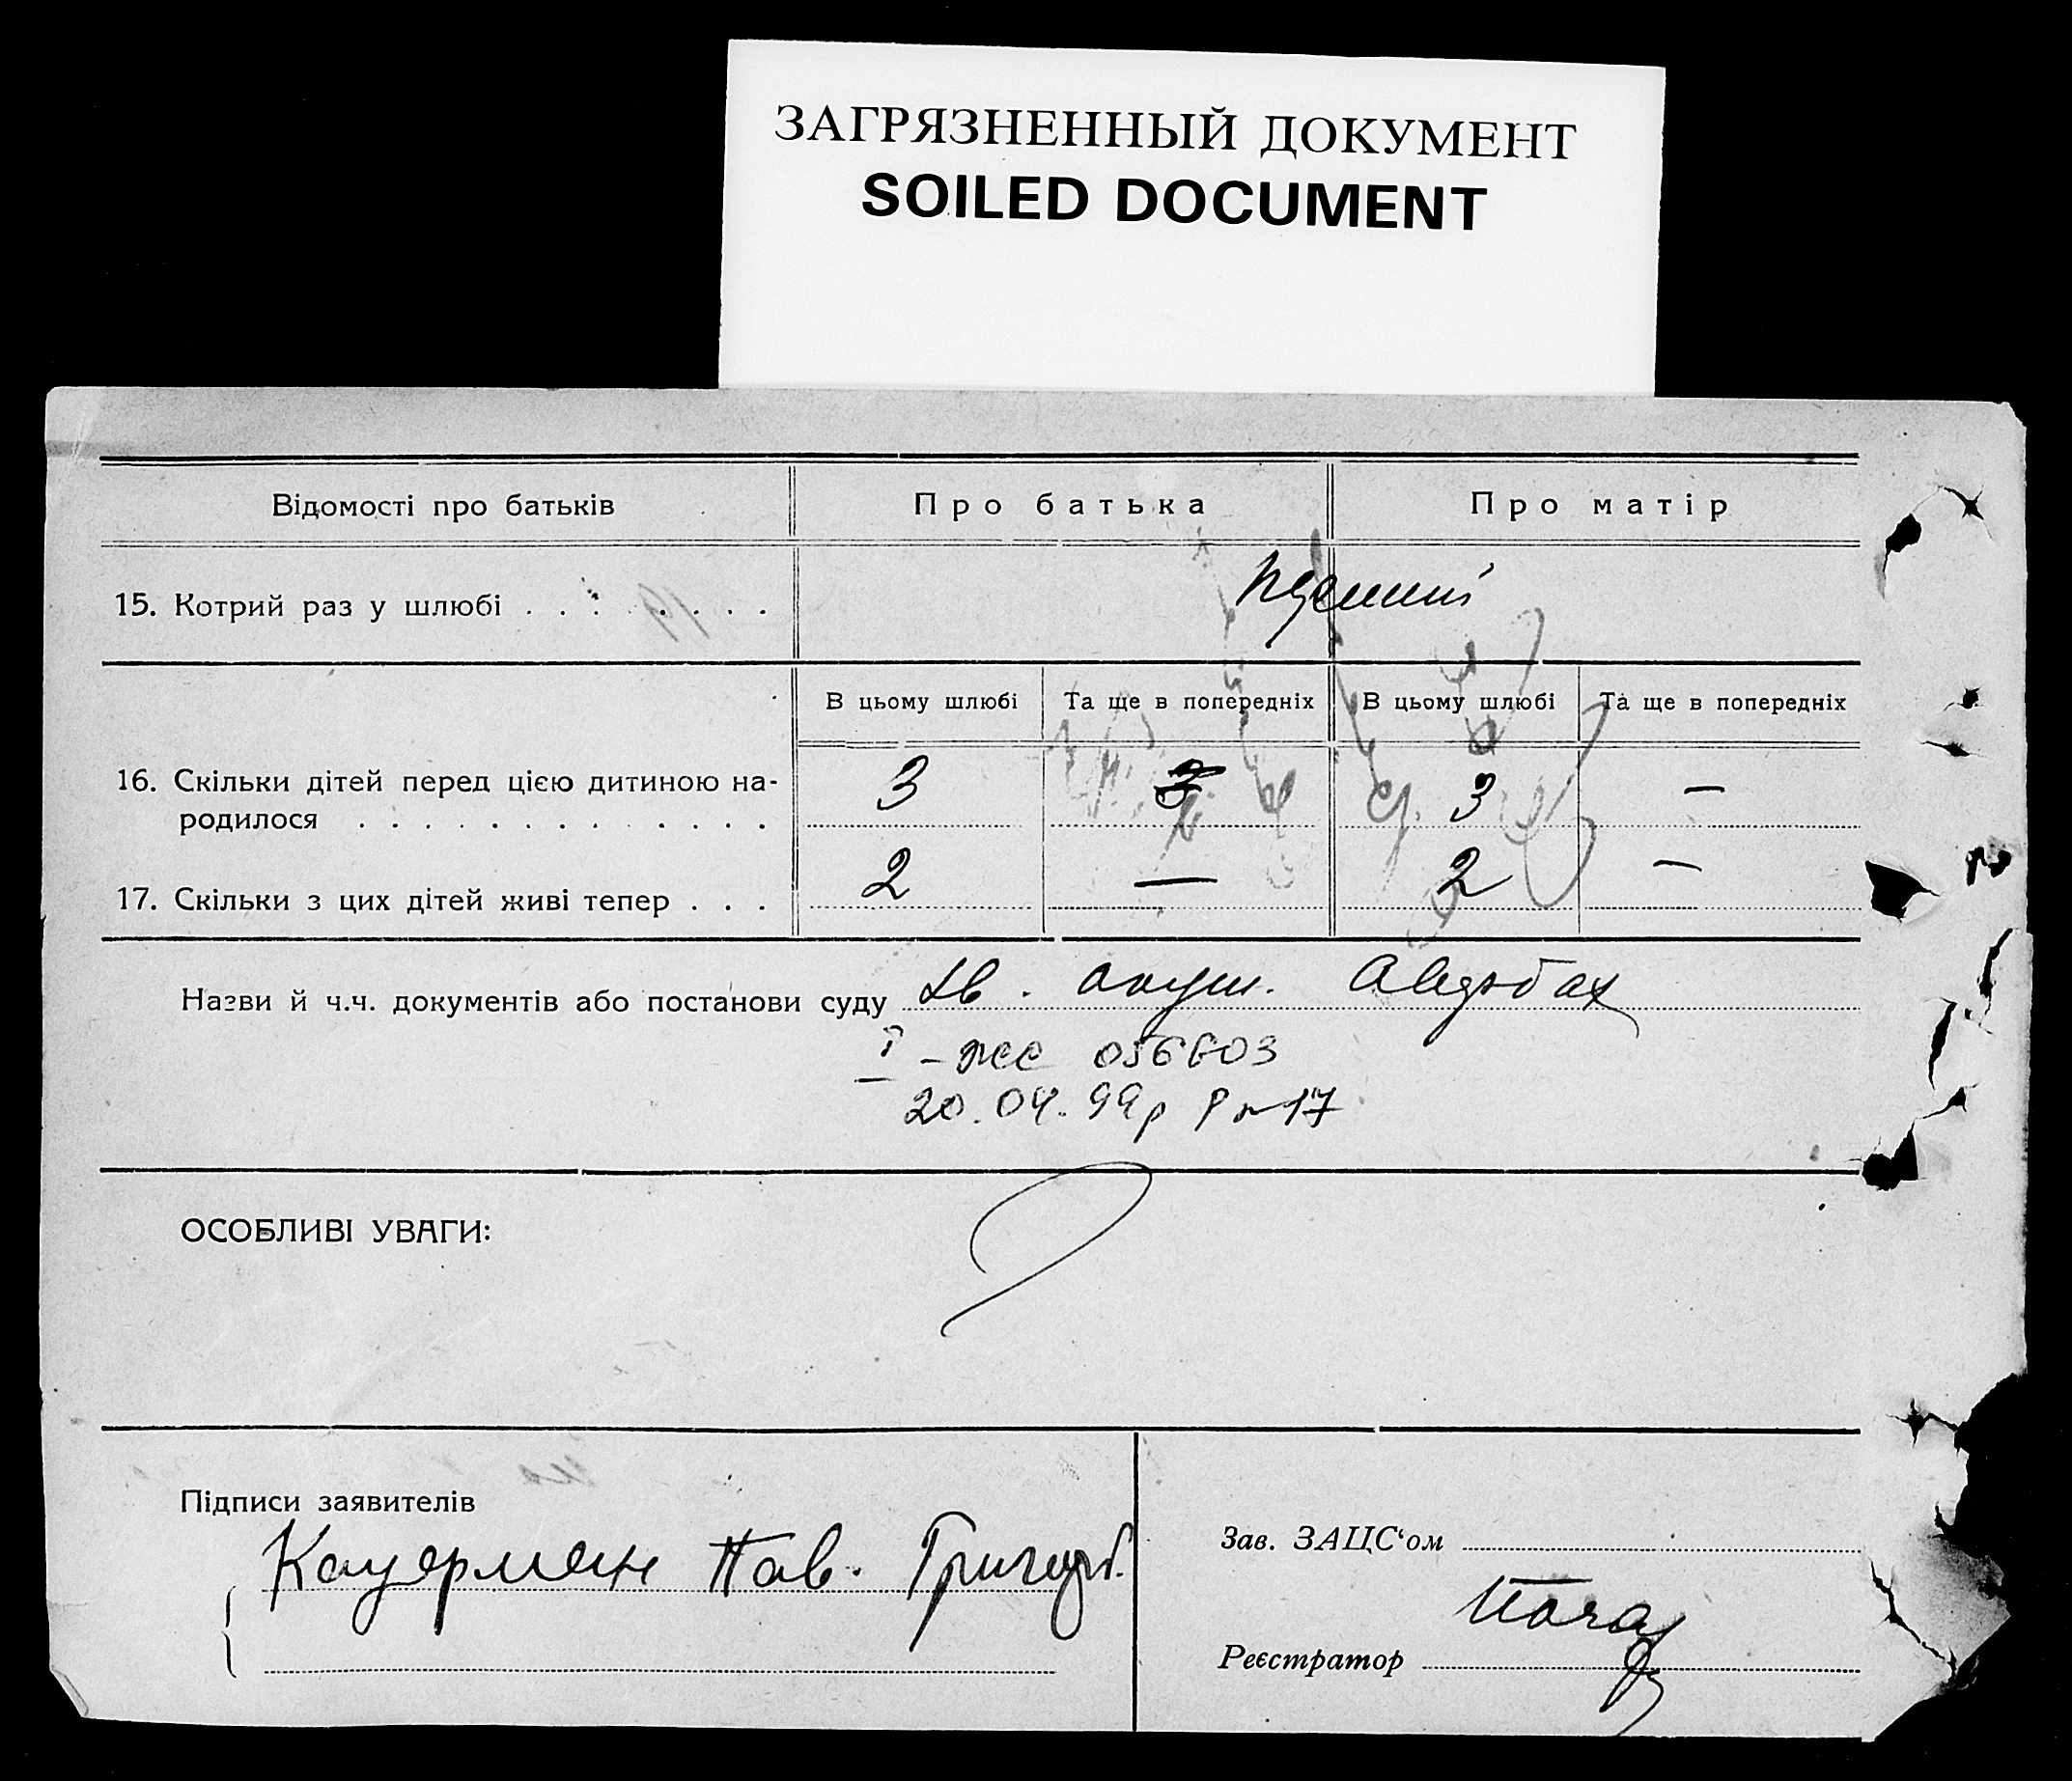 ЗАГРЯЗНЕННЫЙ ДОКУМЕНТ
SOILED DOCUMENT
Відомості про батьків
Про батька
Про матір
15. Котрий раз у шлюбі . . . . . . . .
В цьому шлюбі
Та ще в попередніх
В цьому шлюбі
Та ще в попередніх
16. Скільки дітей перед цією дитиною на-
родилося . . . . . . . . . . . . .
3
3
3
—
17. Скільки з цих дітей живі тепер . . .
2
—
2
—
Назви й ч.ч. документів або постанови суду
20.04.99р
ОСОБЛИВІ УВАГИ:
Підписи заявителів
Пав. Григор.
Зав. ЗАЦС‘ом
Реєстратор